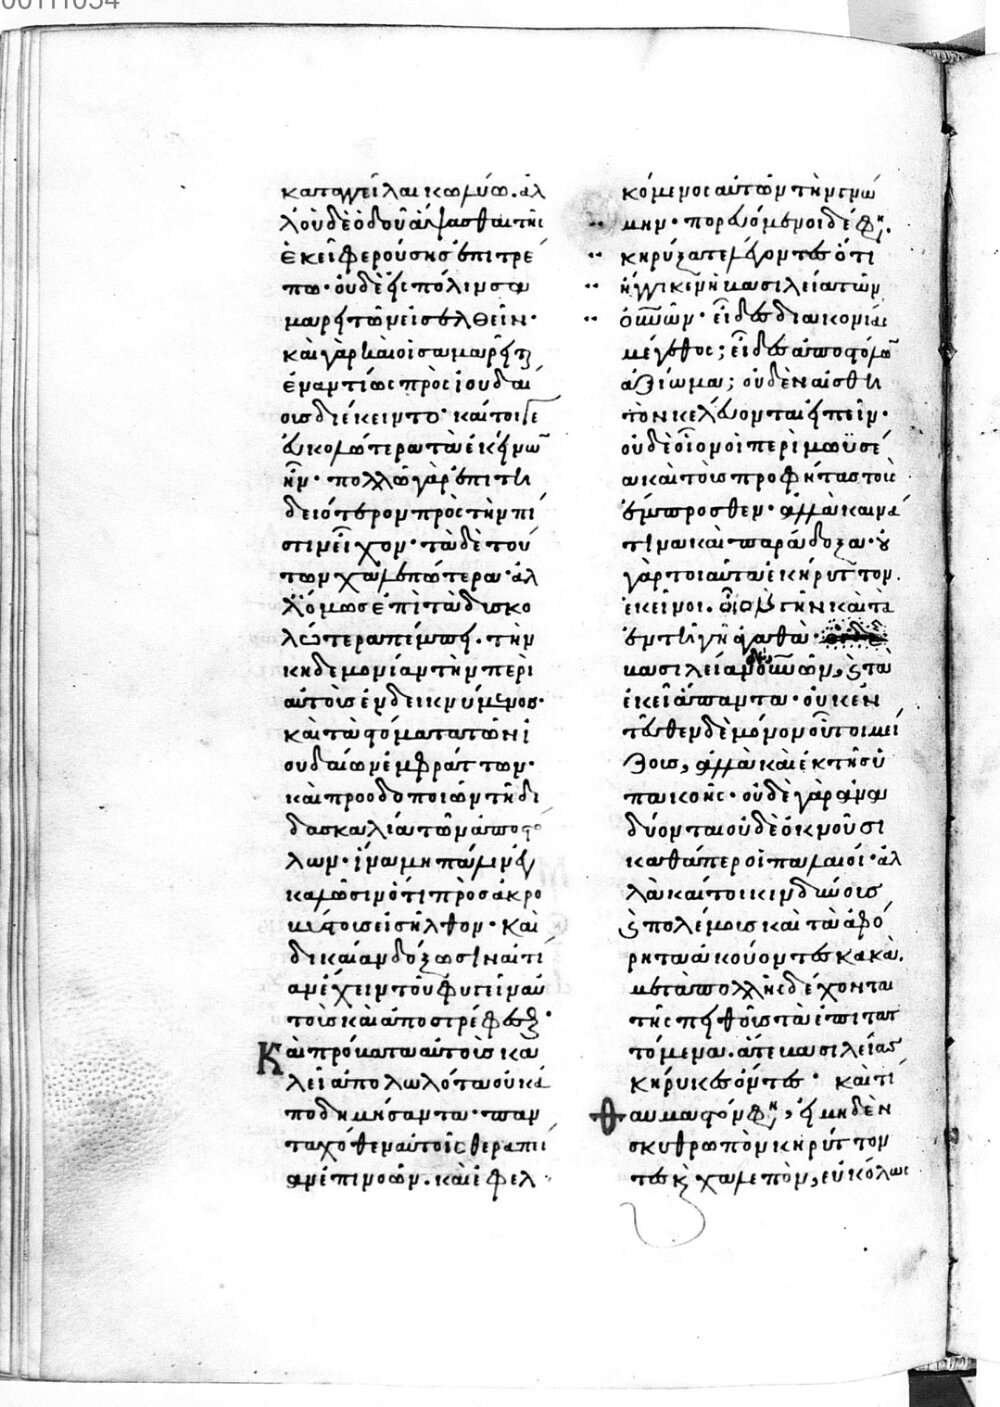 καταγγεῖλαι κωλύω. ἀλ
λ' οὐδὲ ὁδοῦ ἅψασθαι τῆς
ἐκεῖ φερούσης ἐπιτρέ
πω. οὐδὲ εἰς πόλιν σα
μαρειτῶν εἰσελθεῖν·
καὶ γὰρ καὶ οἱ σαμαρεῖται
ἐναντίως πρὸς ἰουδαί
οις διέκειντο· καίτοι γε
εὐκολώτερα τὰ ἐκείνων
ἦν· πολλῶ γὰρ ἐπιτη
δειότερον πρὸς τὴν πί
στιν εἶχον· τὰ δὲ τού
των χαλεπώτερα· ἀλ
λ' ὅμως ἐπὶ τὰ δυσκο
λώτερα πέμπει. τὴν
κηδεμονίαν τὴν περὶ
αὐτοὺς ἐνδεικνύμενος·
καὶ τὰ στόματα τῶν ἰ
ουδαίων ἐμφράττων·
καὶ προοδοποιῶν τῆ δι
δασκαλία τῶν ἀποστό
λων· ἵνα μη πάλιν ἐγ
καλῶσιν ὅτι πρὸς ἀκρο
βύστους εἰσῆλθον· καὶ
δικαίαν δόξωσιν αἰτί
αν ἔχειν τοῦ φυγεῖν αὐ
τοὺς καὶ ἀποστρέφεσθαι·
Καὶ πρόβατα αὐτοὺς κα
λεῖ ἀπολωλότα οὐκ ἀ
ποδημήσαντα· παν
ταχόθεν αὐτοῖς θεραπεί
αν ἐπινοῶν. καὶ ἐφελ
κόμενος αὐτῶν τὴν γνώ
μην· πορευόμενοι δέ φη(σι)
κηρύξατε λέγοντες ὅτι
ἤγγικεν ἡ βασιλεία τῶν
οὐνῶν· εἶδες διακονίας
μέγεθος; εἶδες ἀποστόλων
ἀξίωμα; οὐδὲν αἰσθη
τὸν κελεύονται εἰπεῖν·
οὐδὲ οἷον οἱ περὶ μωϋσέ
α καὶ τοὺς προφήτας τοὺς
ἔμπροσθεν· ἀλλὰ καινά
τινα καὶ παράδοξα· οὐ
γὰρ τοιαῦτα ἐκήρυττον
ἐκεῖνοι. ἀλλὰ γῆν καὶ τὰ
ἐν τῆ γῆ ἀγαθά· οὗτοι δὲ
βασιλείαν οὐνῶν, καὶ τὰ
ἐκεῖ ἅπαντα· οὐκ ἐν
τεῦθεν δὲ μόνον οὗτοι μεί
ζους, ἀλλὰ καὶ ἐκ τῆς ὑ
πακοῆς· οὐδὲ γὰρ ἀνα
δύονται οὐδὲ ὀκνοῦσι
καθάπερ οἱ παλαιοί· ἀλ
λὰ καίτοι κινδύνους
καὶ πολέμους καὶ τὰ ἀφό
ρητα ἀκούοντες κακὰ.
μετὰ πολλῆς δέχονται
τῆς πειθοῦς τὰ ἐπιτατ
τόμενα. ἅτε βασιλείας
κήρυκες ὄντες· καὶ τί
θαυμαστόν φη(σι), εἰ μηδὲν
σκυθρωπὸν κηρύττον
τες καὶ χαλεπὸν, εὐκόλως